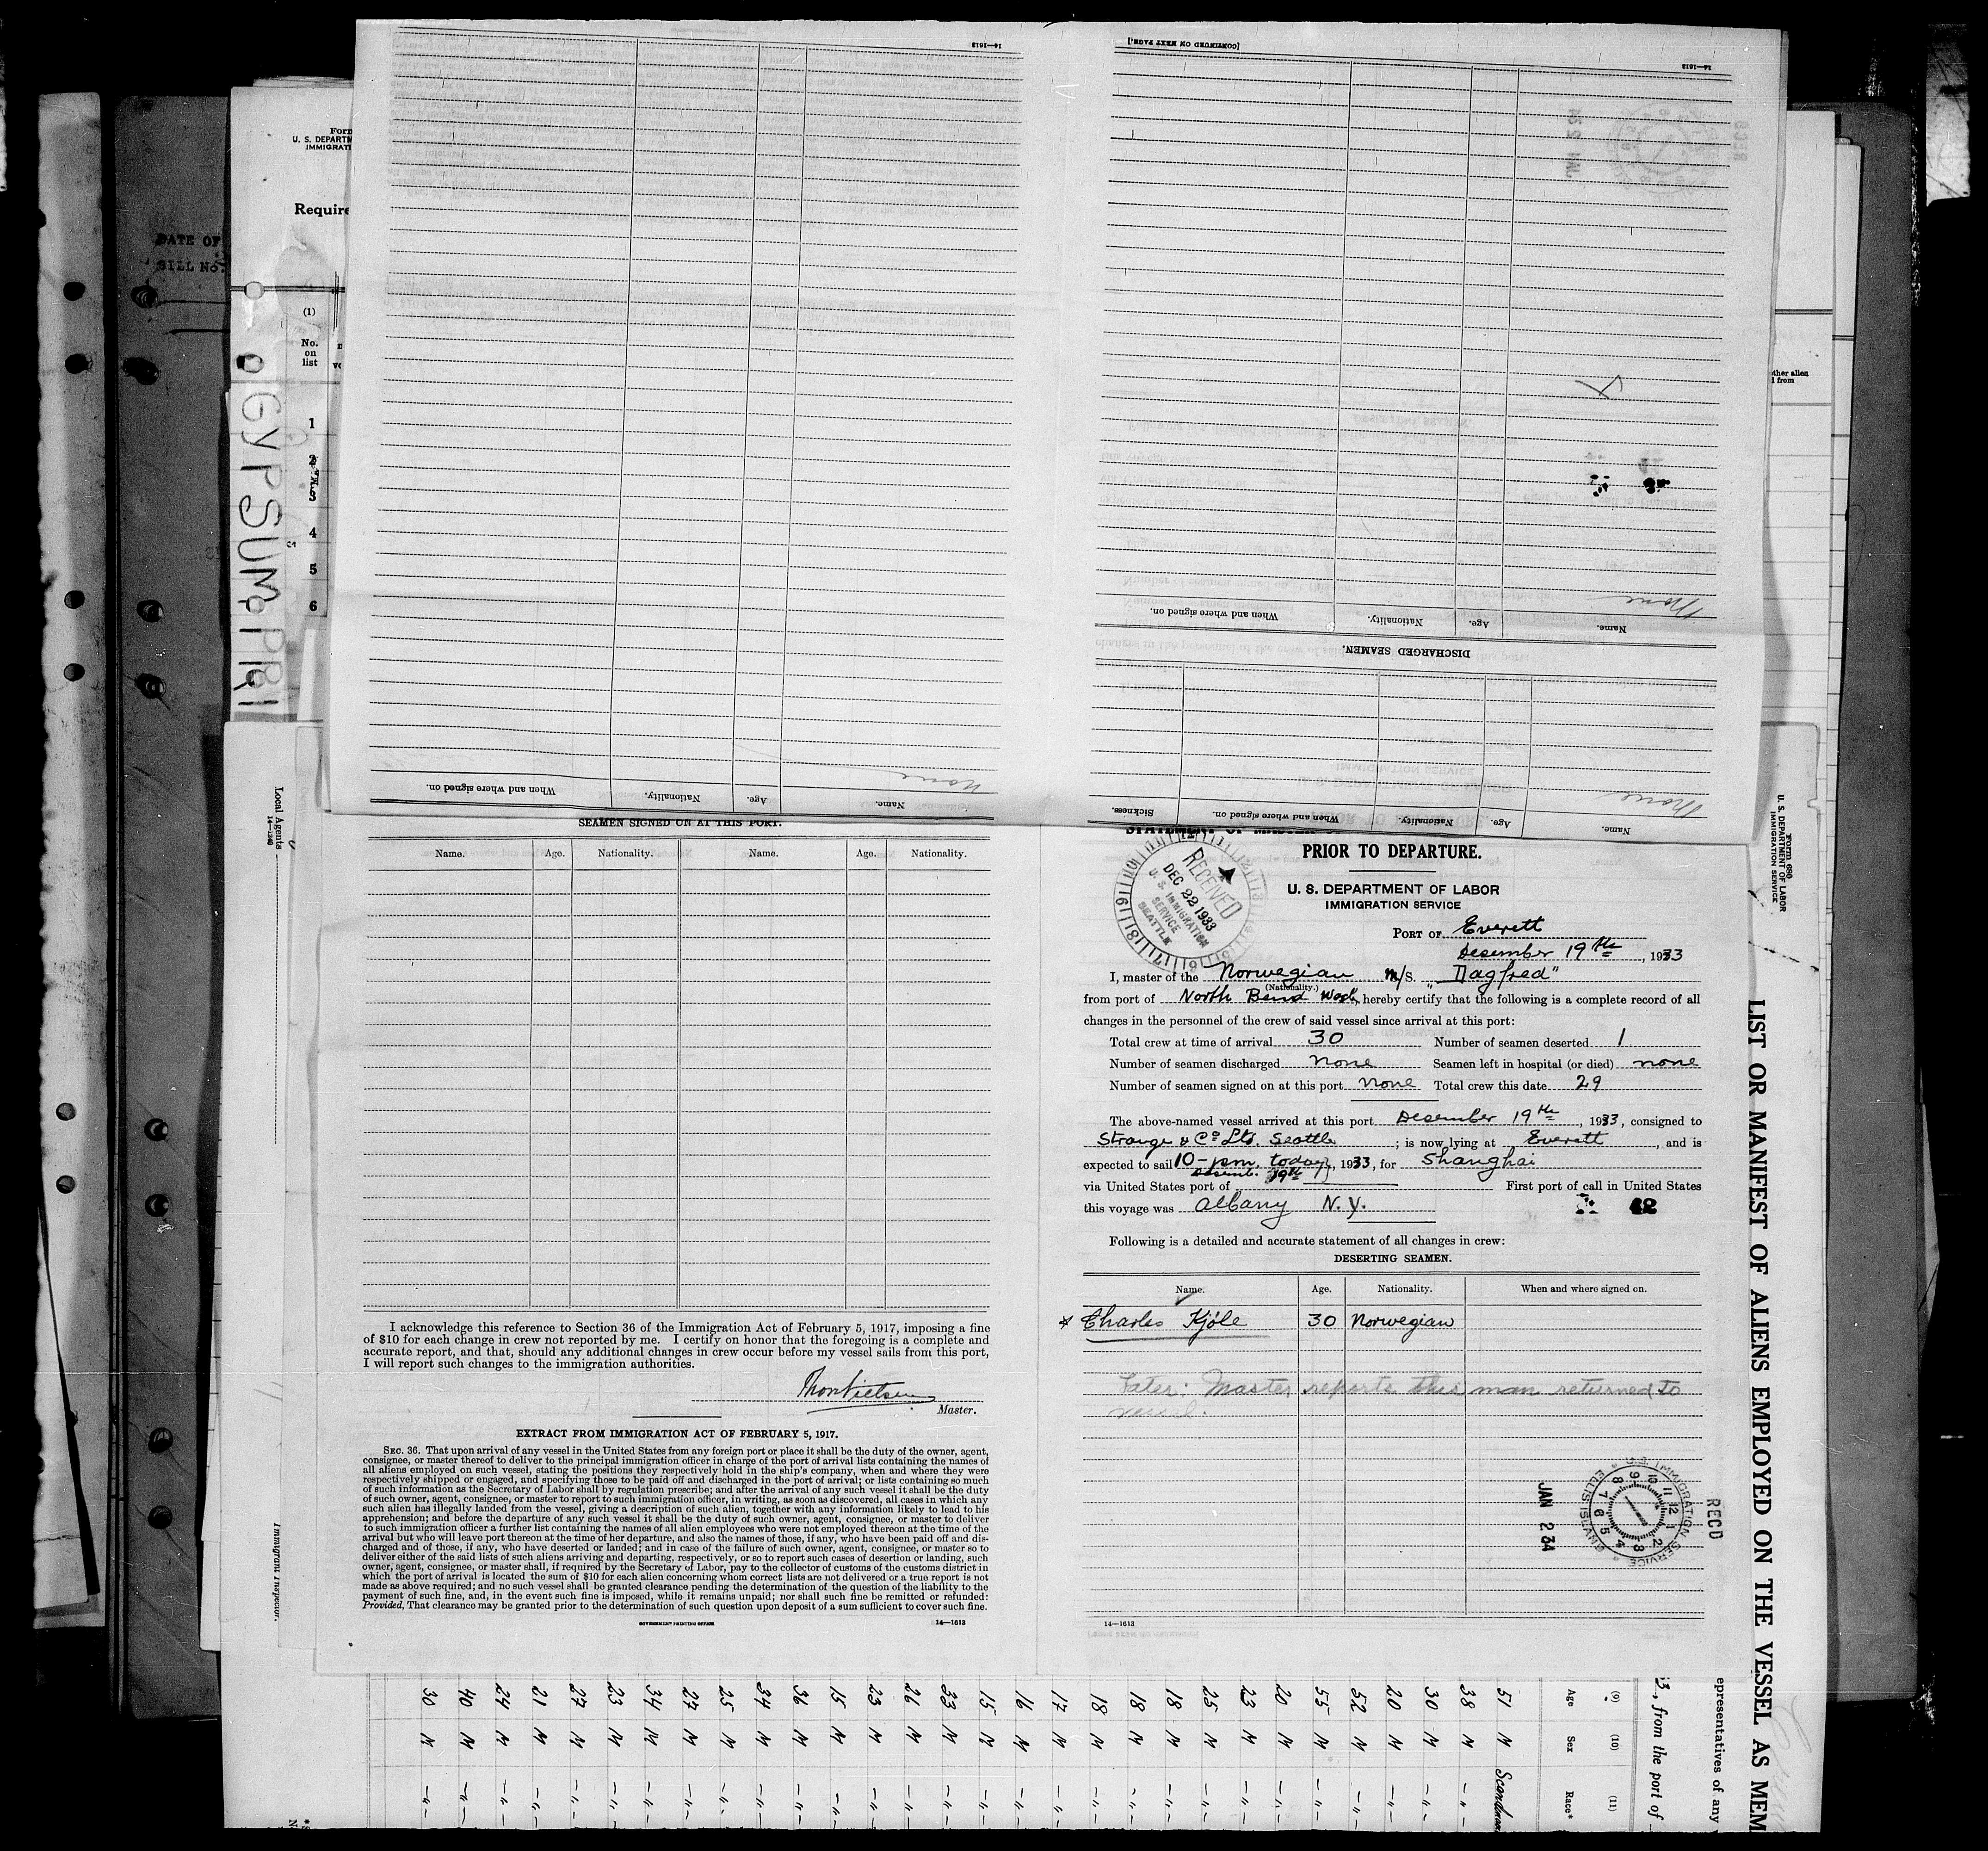 Form
U. S. DEPARTM
IMMIGRATI
Require
DATE OF
BILL No.
(1)
No.
on
list
1
2
3
4
5
6
GYPSUM PRI
14—1613
When and where signed on.
Nationality.
Age.
Name.
None
[CONTINUED ON NEXT PAGE.]
14—1613
When and where signed on.
Nationality.
Age.
Name.
None
DISCHARGED SEAMEN.
Sickness.
When and where signed on.
Nationality.
Age.
Name.
None
other alien
d from
Local Agents
14—1240
Immigrant Inspector.
SEAMEN SIGNED ON AT THIS PORT.
Name. Age. Nationality. Name. Age. Nationality.
I acknowledge this reference to Section 36 of the Immigration Act of February 5, 1917, imposing a fine
of $10 for each change in crew not reported by me. I certify on honor that the foregoing is a complete and
accurate report, and that, should any additional changes in crew occur before my vessel sails from this port,
I will report such changes to the immigration authorities.
Master.
EXTRACT FROM IMMIGRATION ACT OF FEBRUARY 5, 1917.
SEC. 36. That upon arrival of any vessel in the United States from any foreign port or place it shall be the duty of the owner, agent,
consignee, or master thereof to deliver to the principal immigration officer in charge of the port of arrival lists containing the names of
all aliens employed on such vessel, stating the positions they respectively hold in the ship's company, when and where they were
respectively shipped or engaged, and specifying those to be paid off and discharged in the port of arrival; or lists containing so much
of such information as the Secretary of Labor shall by regulation prescribe; and after the arrival of any such vessel it shall be the duty
of such owner, agent, consignee, or master to report to such immigration officer, in writing, as soon as discovered, all cases in which any
such alien has illegally landed from the vessel, giving a description of such alien, together with any information likely to lead to his
apprehension; and before the departure of any such vessel it shall be the duty of such owner, agent, consignee, or master to deliver
to such immigration officer a further list containing the names of all alien employees who were not employed thereon at the time of the
arrival but who will leave port thereon at the time of her departure, and also the names of those, if any, who have been paid off and dis-
charged and of those, if any, who have deserted or landed; and in case of the failure of such owner, agent, consignee, or master so to
deliver either of the said lists of such aliens arriving and departing, respectively, or so to report such cases of desertion or landing, such
owner, agent, consignee, or master shall, if required by the Secretary of Labor, pay to the collector of customs of the customs district in
which the port of arrival is located the sum of $10 for each alien concerning whom correct lists are not delivered or a true report is not
made as above required; and no such vessel shall be granted clearance pending the determination of the question of the liability to the
payment of such fine, and, in the event such fine is imposed, while it remains unpaid; nor shall such fine be remitted or refunded:
Provided, That clearance may be granted prior to the determination of such question upon deposit of a sum sufficient to cover such fine.
GOVERNMENT PRINTING OFFICE 14—1613
PRIOR TO DEPARTURE.
RECEIVED
DEC 22 1933
U. S. IMMIGRATION
SERVICE
SEATTLE
U. S. DEPARTMENT OF LABOR
IMMIGRATION SERVICE
PORT OF Everett
Desember 19th, 1933
I, master of the Norwegian M/S. "Dagfred"
(Nationality.)
from port of North Bend Wash, hereby certify that the following is a complete record of all
changes in the personnel of the crew of said vessel since arrival at this port:
Total crew at time of arrival 30 Number of seamen deserted 1
Number of seamen discharged none Seamen left in hospital (or died) none
Number of seamen signed on at this port none Total crew this date 29
The above-named vessel arrived at this port Desember 19th, 1933, consigned to
Strange & Co Ltd. Seattle; is now lying at Everett, and is
expected to sail 10-pm. today, 1933, for Shanghai
Desemb. 19th
via United States port of First port of call in United States
this voyage was Albany N. Y. 42
Following is a detailed and accurate statement of all changes in crew:
DESERTING SEAMEN.
Name. Age. Nationality. When and where signed on.
Charles Kjöle 30 Norwegian
Later: Master reports this man returned to
vessel.
RECD
U.S. IMMIGRATION SERVICE
ELLIS ISLAND
JAN 2 34
14—1613
Form 680
U. S. DEPARTMENT OF LABOR
IMMIGRATION SERVICE
LIST OR MANIFEST OF ALIENS EMPLOYED ON THE VESSEL AS MEM
epresentatives of any
3, from the port of
(9) (10) (11)
Age Sex Race*
51 M
38 M -"-
30 M -"-
20 M -"-
52 M -"-
55 M -"-
20 M -"-
23 M -"-
25 M -"-
18 M -"-
18 M -"-
18 M -"-
17 M -"-
16 M -"-
15 M -"-
33 M -"-
26 M -"-
23 M -"-
15 M -"-
36 M -"-
34 M -"-
25 M -"-
27 M -"-
34 M -"-
23 M -"-
27 M -"-
21 M -"-
24 M -"-
40 M -"-
30 M -"-